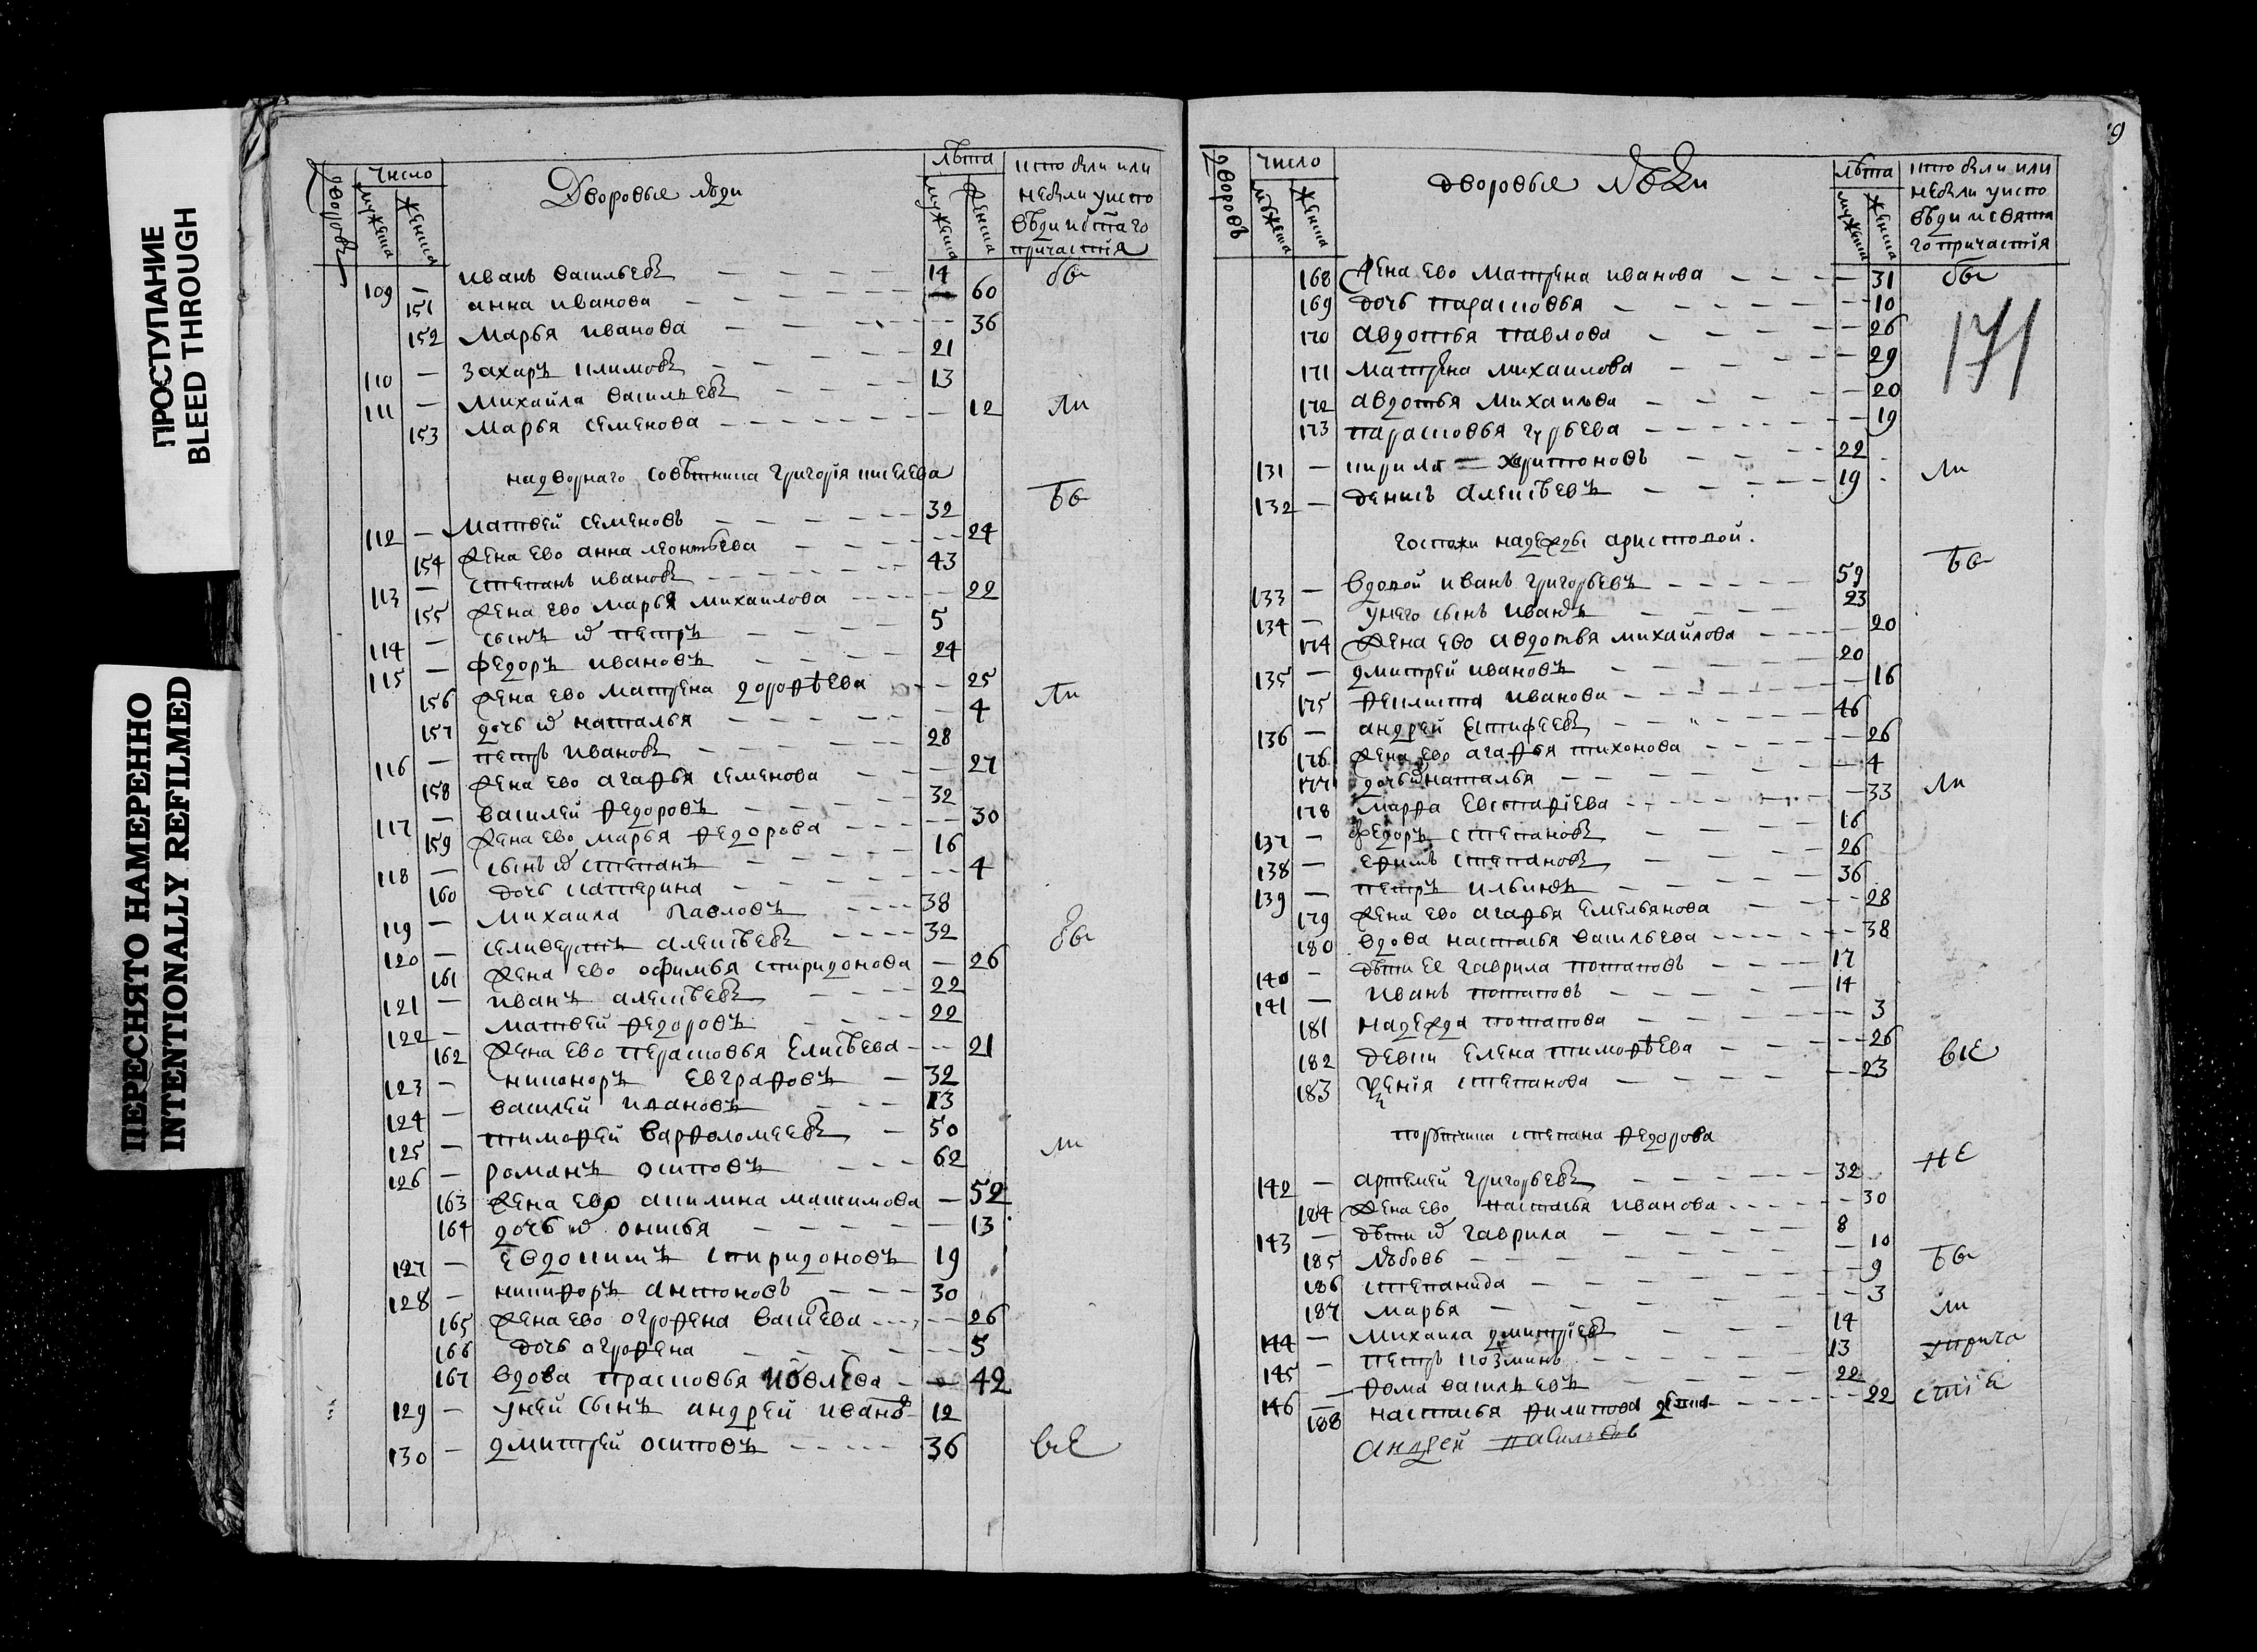 ПРОСТУПАНИЕ
BLEED THROUGH
ПЕРЕСНЯТО НАМЕРЕННО
INTENTIONALLY REFILMED
дворовъ число Дворовые люди лѣта кто были или
мужеска женска мужеска женска небыли уиспо
вѣди истаго
причастiя
109 — иванъ васильевъ 14 бы
151 анна иванова 60
152 марья иванова 36
110 — захаръ климовъ 21
111 — михайла васильевъ 13
153 марья семенова 12 ли
надворнаго совѣтника григорiя киселева
112 — матвей семеновъ 32 бы
154 жена ево анна леонтьева 24
113 — степанъ ивановъ 43
155 жена ево марья михаилова 22
114 — сынъ их петръ 5
115 — федоръ ивановъ 24
156 жена ево матрена дорофѣева 25 ли
157 дочь их наталья 4
116 — петръ ивановъ 28
158 жена ево агафья семенова 27
117 — василей федоровъ 32
159 жена ево марья федорова 30
118 — сынъ их степанъ 16
160 дочь катерина 4
119 — михаила павловъ 38
120 — селиверстъ алексѣевъ 32 бы
161 жена ево офимья спиридонова 26
121 — иванъ алексѣевъ 22
122 — матвей федоровъ 22
162 жена ево перасковья елисѣева 21
123 — никаноръ евграфовъ 32
124 — василей ивановъ 13
125 — тимофей варфоломеевъ 50
126 — романъ осиповъ 62 ли
163 жена ево акилина макимова 52
164 дочь их онисья 13
127 — евдокимъ спиридоновъ 19
128 — никифоръ антоновъ 30
165 жена ево огрофена 26
166 дочь огрофена 5
167 вдова прасковья 42
129 — уней сынъ андрей ивано 12
130 — дмитрей осиповъ 36 все
19
дворовъ число дворовые люди лѣта кто были или
мужеска женска мужеска женска небыли уиспо
вѣди исвята
го причастiя
168 жена ево матрена иванова 31 бы
169 дочь парасковья 10
171
170 авдотья павлова 26
171 матрена михаилова 29
172 авдотья михаилова 20
173 парасковья гурьева 19
131 — кирила харитоновъ 22 ли
132 — денисъ алексѣевъ 19
госпожи надежды аристовой.
133 — вдовой иванъ григорьевъ 59 бы
134 — унего сынъ иванъ 23
174 жена ево авдотья михайлова 20
135 — дмитрей ивановъ 20
175 феклиста иванова 16
136 — андрей епифеевъ 46
176 жена ево агафья тихонова 26
177 дочь их наталья 4
178 марфа евстафiева 33 ли
137 — федоръ степановъ 16
138 — ефимъ степановъ 26
139 — петръ ильинъ 36
179 жена ево агафья емельянова 28
180 вдова настасья васильева 38
140 — дѣти ее гаврила потаповъ 17
141 — иванъ потаповъ 14
181 надежда потапова 3
182 девки елена тимофѣева 26 все
183 степанова 23
порутчика степана федорова
142 — артемей григорьевъ 32 не
184 жена ево настасья иванова 30
143 — дѣти их гаврила 8
185 любовь 10
186 степанида 9 бы
187 марья 3
144 — михаила дмитрiевъ 14 ли
145 — петръ козминъ 13 прича
146 — фома васильевъ 22
188 настасья филипова 22 стiе
андрей